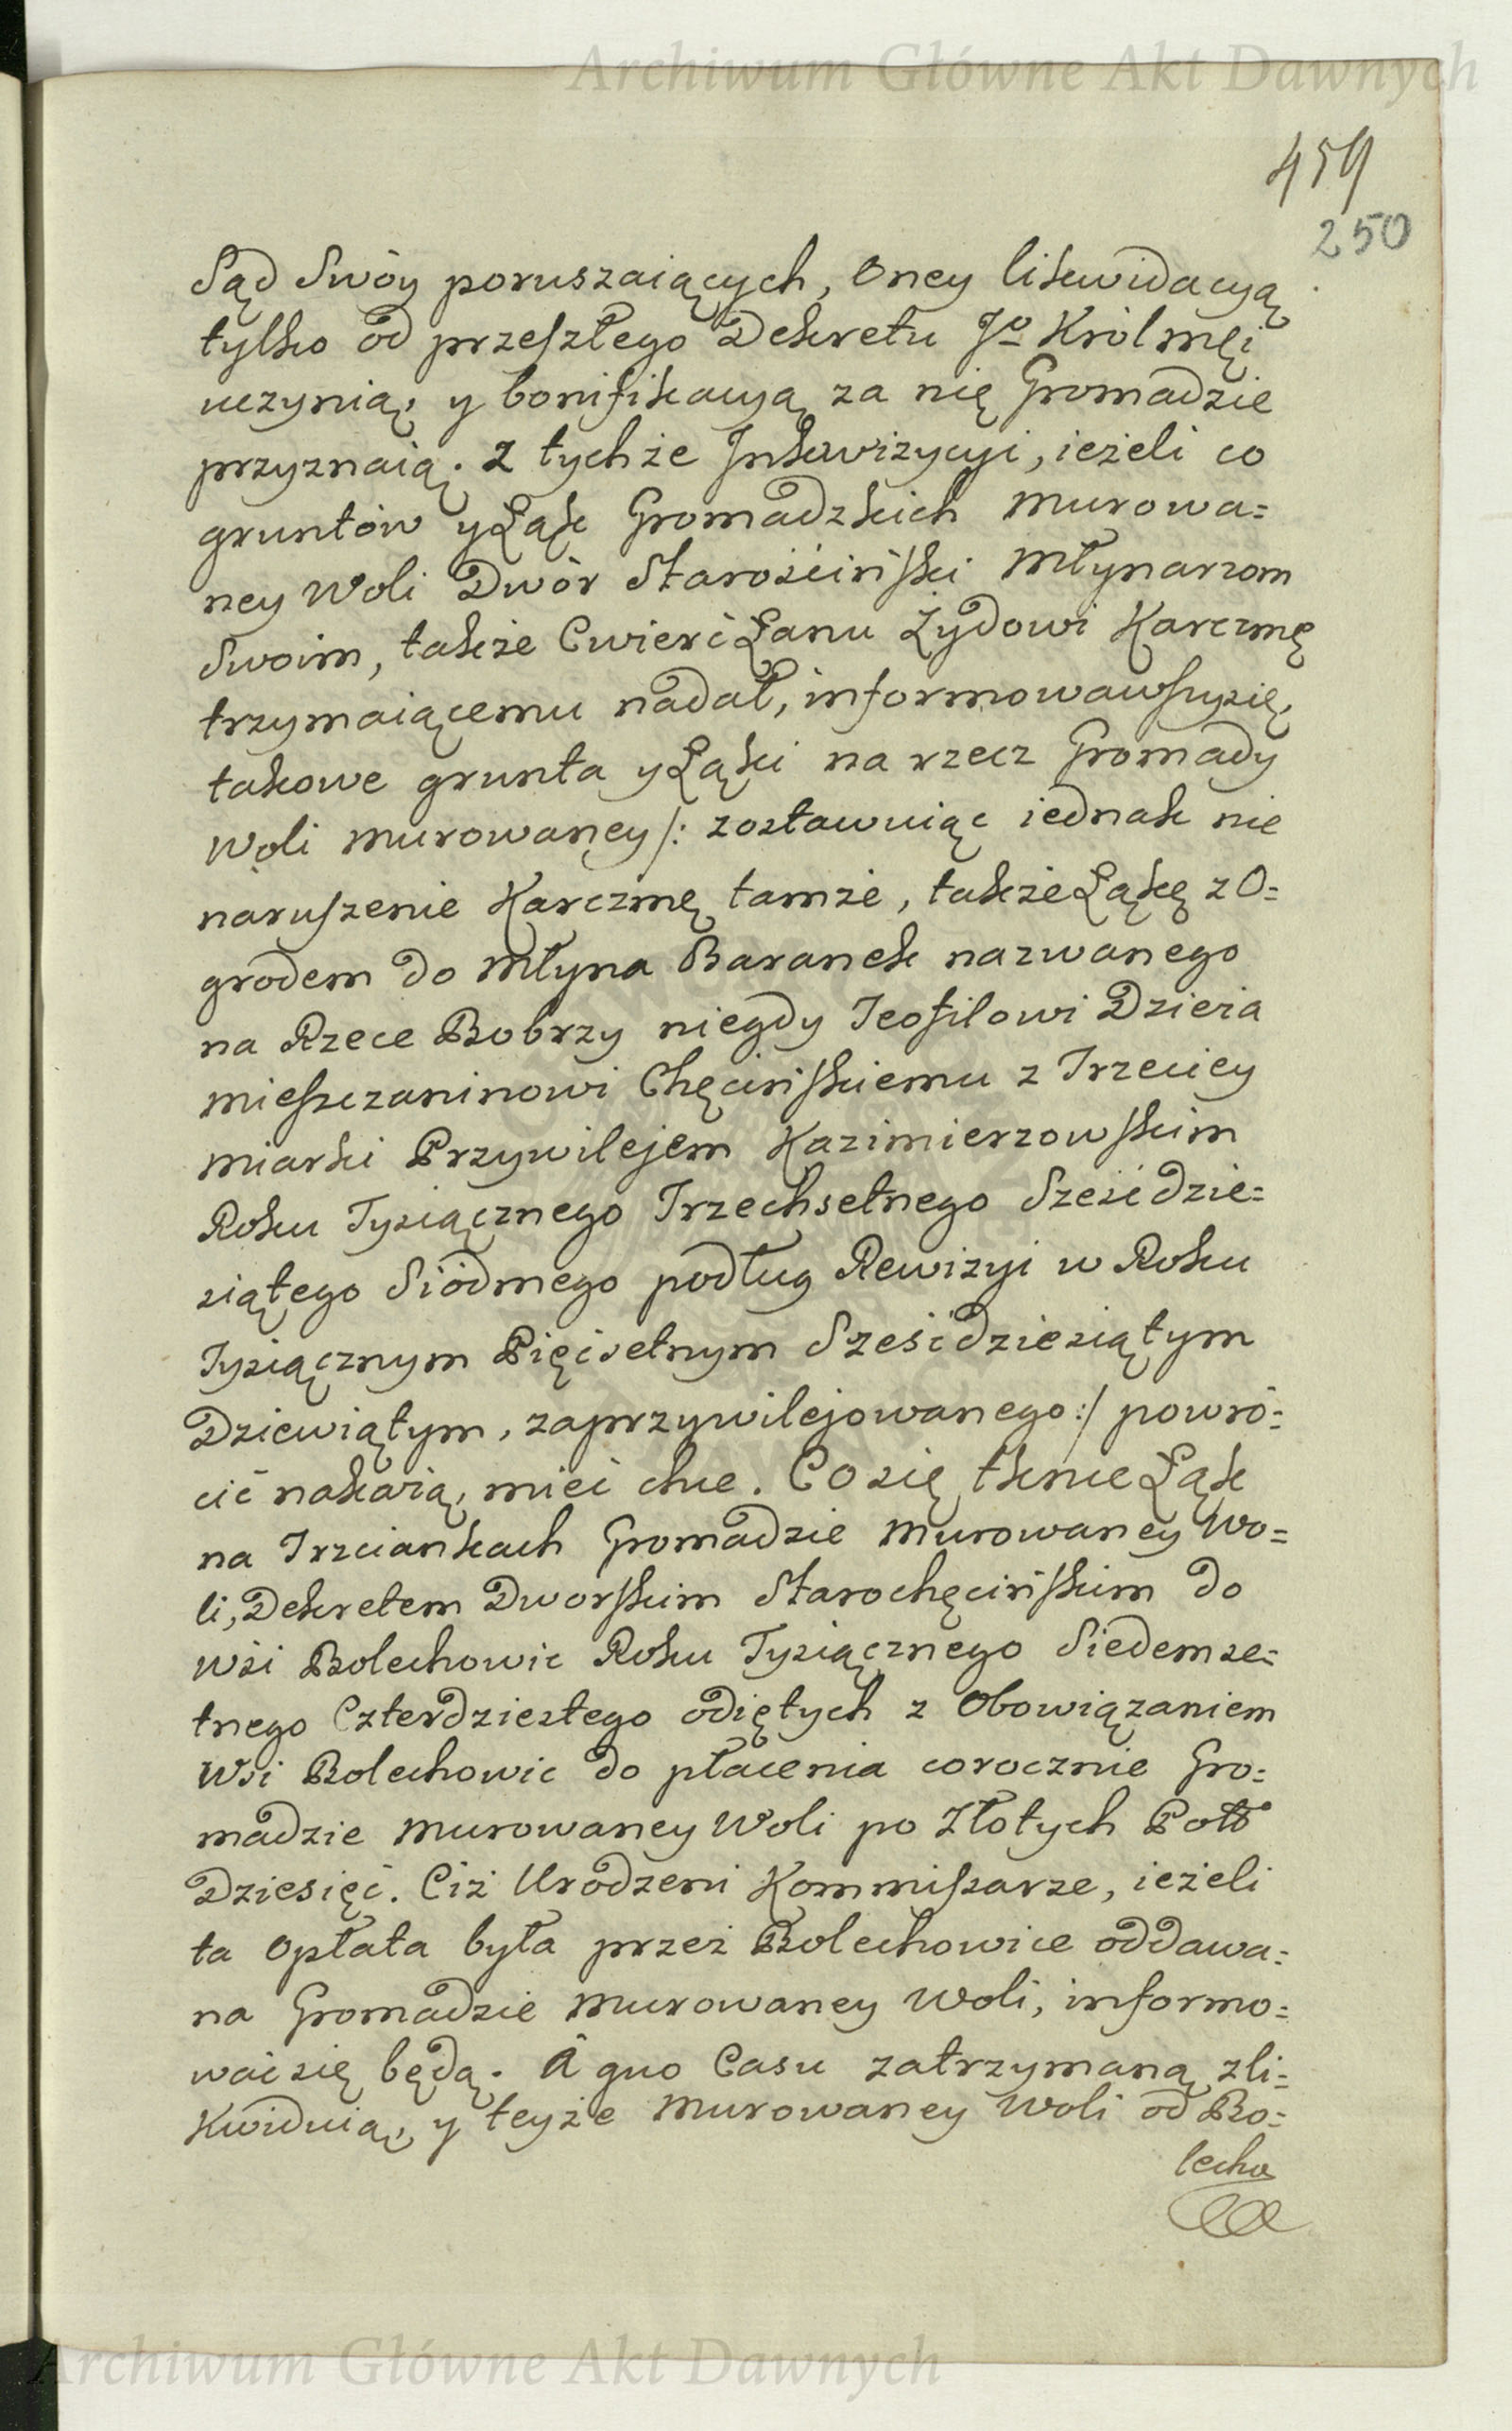 Archiwum Główne Akt Dawnych
459
250
Sąd Swóy poruszaiących, Oney likwidacyą
tylko od przeszłego Dekretu Jo Królmęi
uczynią, y bonifikacyą za nię Gromadzie
przyznaią. Z tychże Inkwizycyi, ieżeli co
gruntów y Łąk Gromadzkich Murowa=
ney Woli Dwór Starościński Młynarzom
Swoim, także Cwierć Łanu Żydowi Karczmę
trzymaiącemu nadał, informowawszysię,
takowe grunta y Łąki na rzecz Gromady
Woli Murowaney /: zostawuiąc iednak nie
naruszenie Karczmę tamże, także Łąkę z O=
grodem do Młyna Baranek nazwanego
na Rzece Bobrzy niegdy Teofilowi Dzieża
mieszczaninowi Chęcińskiemu z Trzeciey
miarki Przywilejem Kazimierzowskim
Roku Tysiącznego Trzechsetnego Sześćdzie=
siątego Siódmego podług Rewizyi w Roku
Tysiącznym Pięćsetnym Sześćdziesiątym
Dziewiątym, zaprzywilejowanego :/ powró=
cić nakażą, mieć chce. Co się tknie Łąk
na Trzciankach Gromadzie Murowaney Wo=
li, Dekretem Dworskim Starochęcińskim do
Wsi Bolechowic Roku Tysiącznego Siedemse=
tnego Czterdziestego odiętych z Obowiązaniem
Wsi Bolechowic do płacenia corocznie Gro=
madzie Murowaney Woli po Złotych Pols
Dziesięć. Ciż Urodzeni Kommissarze, ieżeli
ta Opłata była przez Bolechowice oddawa=
na Gromadzie Murowaney Woli, informo=
wać się będą. A quo Casu zatrzymaną zli=
kwiduią, y teyże Murowaney Woli od Bo=
lecho
Archiwum Główne Akt Dawnych